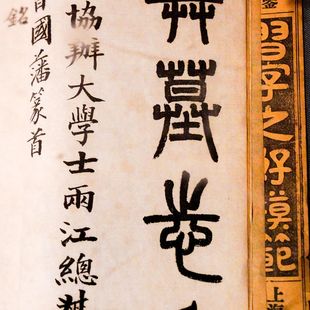 習字之好模範
上海
墓志
協辦大學士兩江總
曾國藩篆首
銘